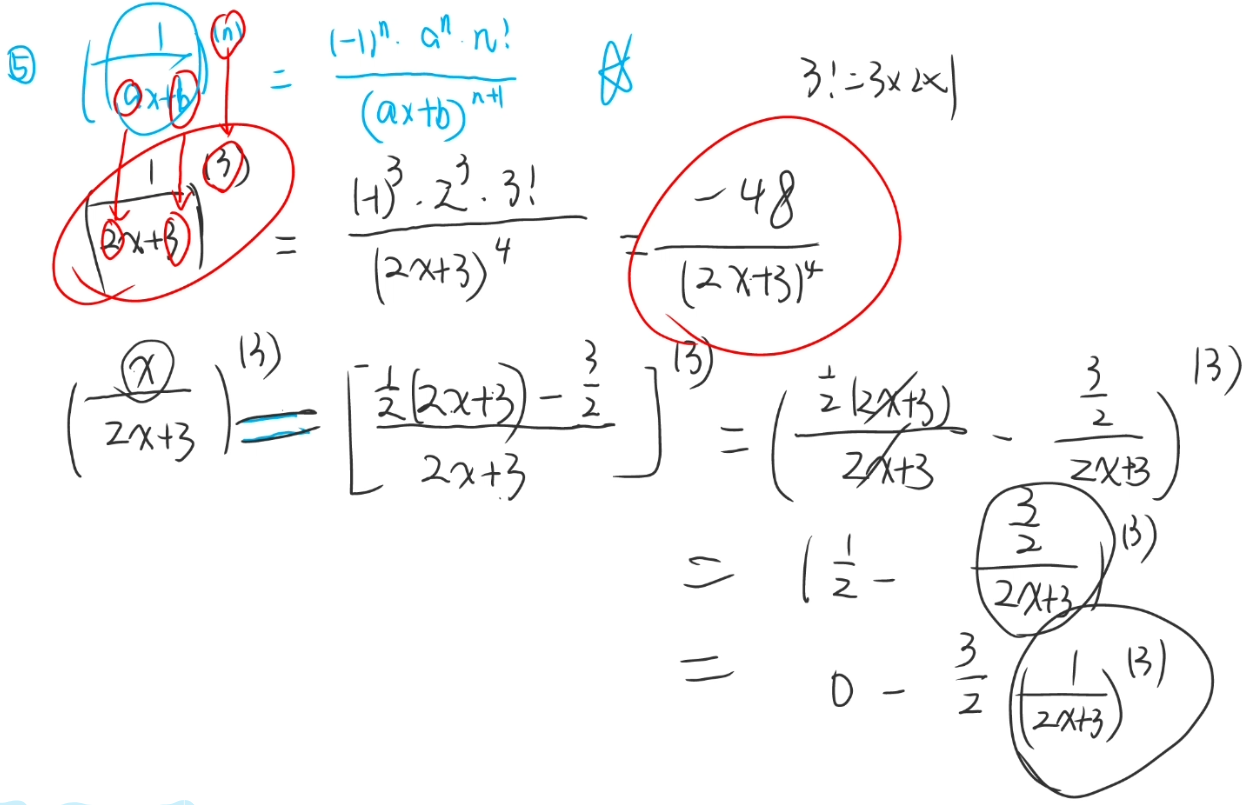 ⑤ (1/(ax+b))^(n) = ((-1)^n · a^n · n!)/((ax+b)^(n+1)) ☆ 3! = 3×2×1
(1/(2x+3))^(3) = ((-1)^3 · 2^3 · 3!)/((2x+3)^4) = (-48)/((2x+3)^4)
(x/(2x+3))^(3) = [(1/2(2x+3) - 3/2)/(2x+3)]^(3) = ((1/2(2x+3))/(2x+3) - (3/2)/(2x+3))^(3)
= (1/2 - (3/2)/(2x+3))^(3)
= 0 - 3/2 (1/(2x+3))^(3)